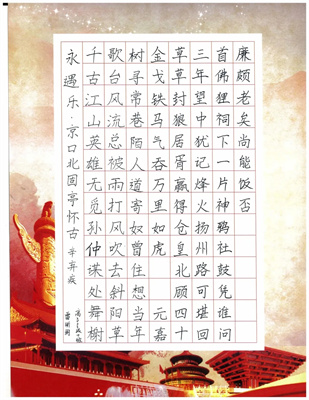 永遇乐·京口北固亭怀古 辛弃疾
千古江山英雄无觅孙仲谋处舞榭
歌台风流总被雨打风吹去斜阳草
树寻常巷陌人道寄奴曾住想当年
金戈铁马气吞万里如虎 元嘉
草草封狼居胥赢得仓皇北顾四十
三年望中犹记烽火扬州路可堪回
首佛狸祠下一片神鸦社鼓凭谁问
廉颇老矣尚能饭否